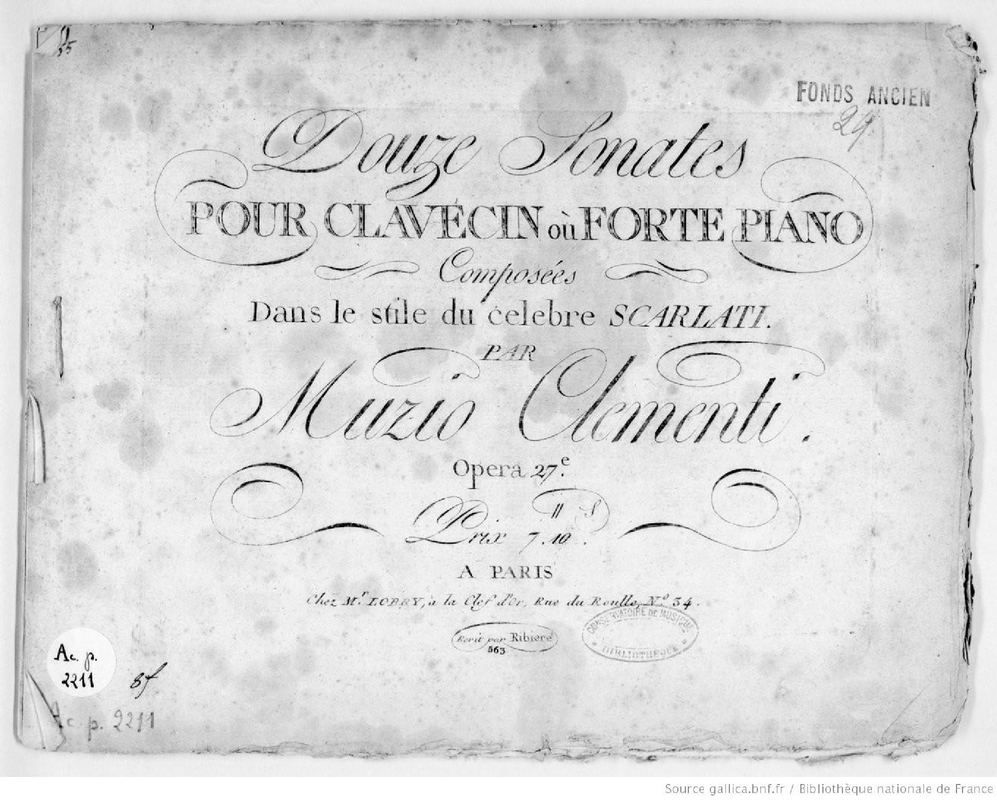 35
FONDS ANCIEN
29
Douze Sonates
POUR CLAVÉCIN où FORTE PIANO
Composées
Dans le stile du célebre SCARLATI.
PAR
Muzio Clementi.
Opera 27.e
Prix 7.tt 10.s
A PARIS
Chez M.r LOBRY, à la Clef d'Or, Rue du Roulle, N.o 34.
Ecrit par Ribiere
563
CONSERVATOIRE DE MUSIQUE
BIBLIOTHEQUE
Ac. p.
2211
Ac. p. 2211
Source gallica.bnf.fr / Bibliothèque nationale de France